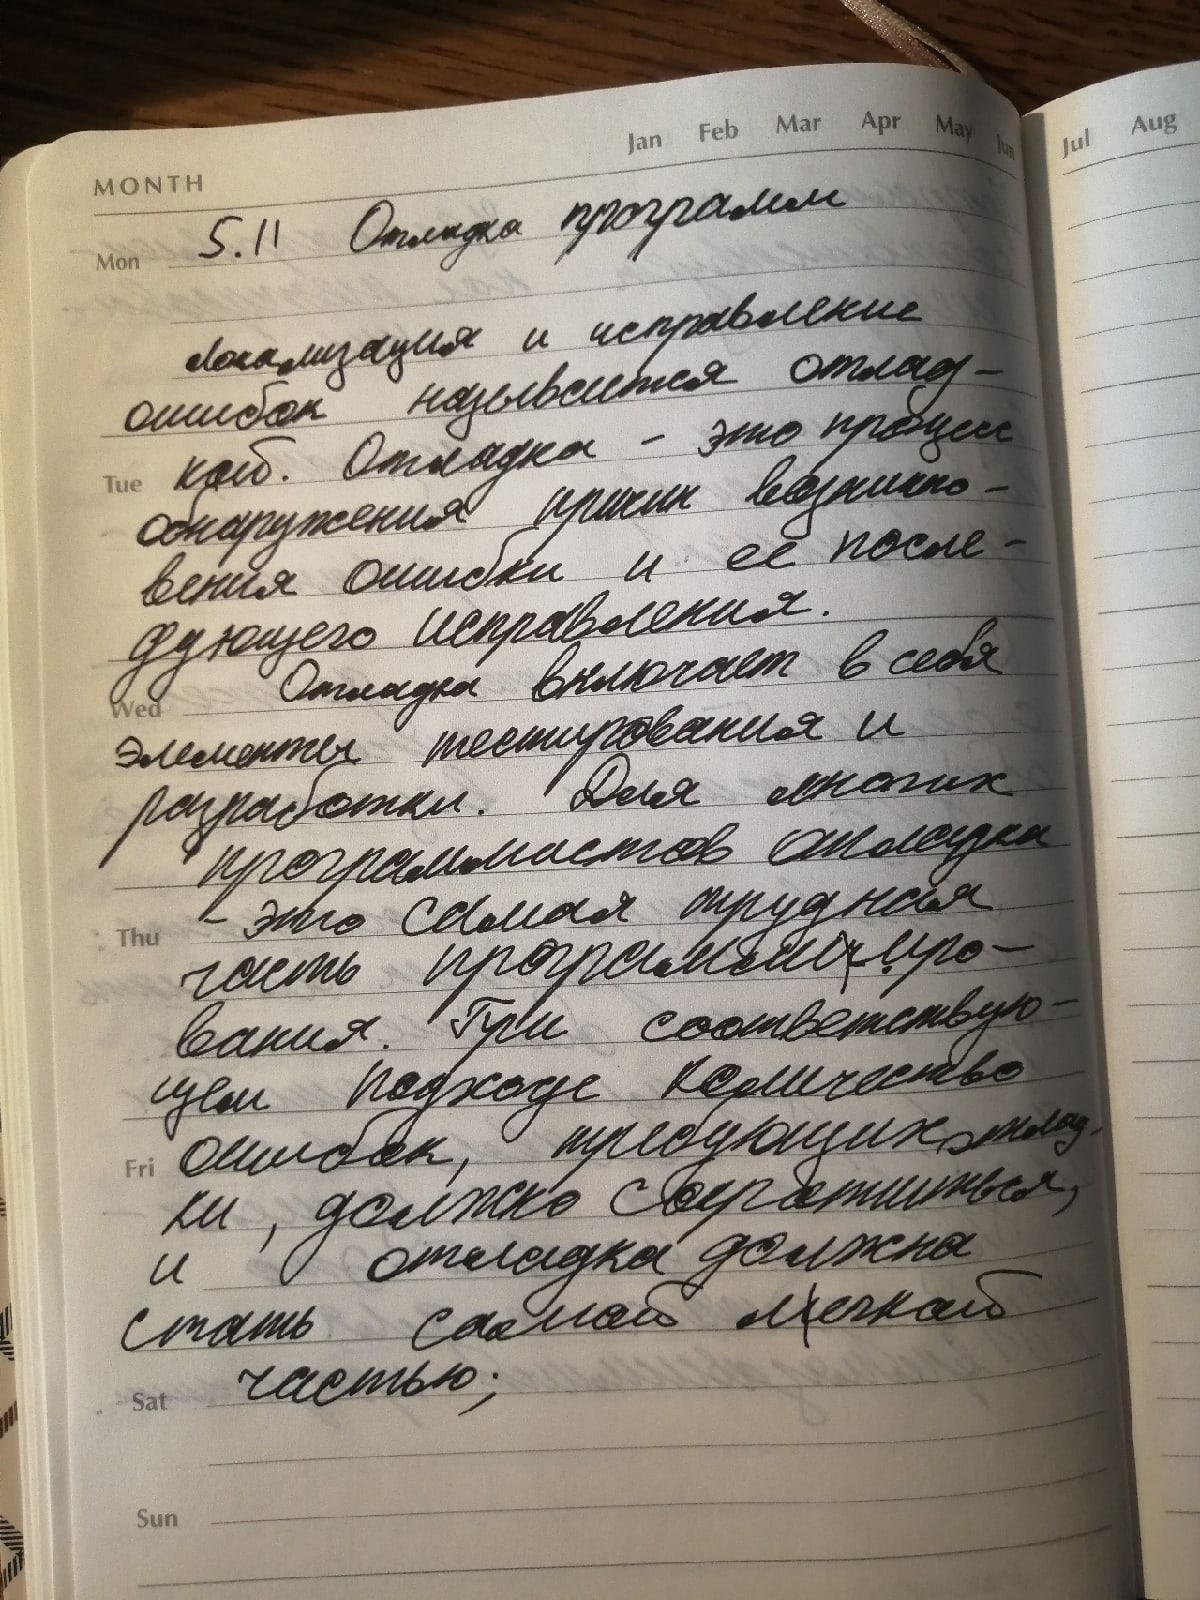 Jan Feb Mar Apr May Jun Jul Aug
MONTH
5.11 Отладка программ
Mon
локализация и исправление
ошибок называется отлад-
Tue кой. Отладка - это процесс
обнаружения причин возникно-
вения ошибки и её после-
дующего исправления.
Отладка включает в себя
Wed
элементы тестирования и
разработки. Для многих
программистов отладка
- это самая трудная
Thu
часть программиро-
вания. При соответствую-
щем подходе количество
Fri ошибок, требующих отлад-
ки, должно сократиться,
и отладка должна
стать самой легкой
Sat частью;
Sun